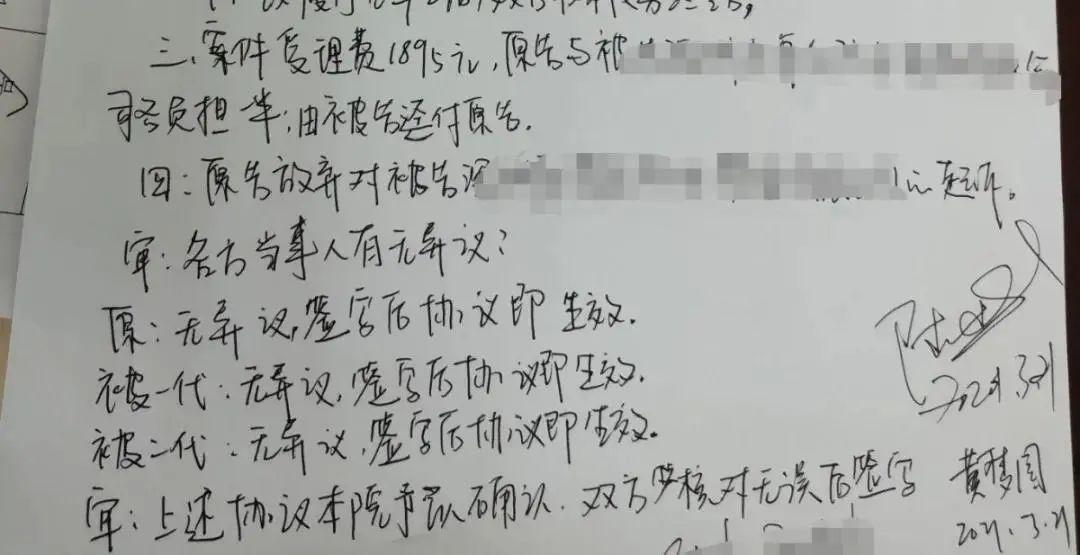 三、案件受理费1895元,原告与被
司各负担一半,由被告迳付原告.
四:原告放弃对被告深 的起诉。
审:各方当事人有无异议?
原:无异议,签字后协议即生效.
被一代:无异议,签字后协议即生效.
被二代:无异议,签字后协议即生效.
2021.3.21
审:上述协议本院予以确认.双方阅核对无误后签字
黄梦园
2021.3.21